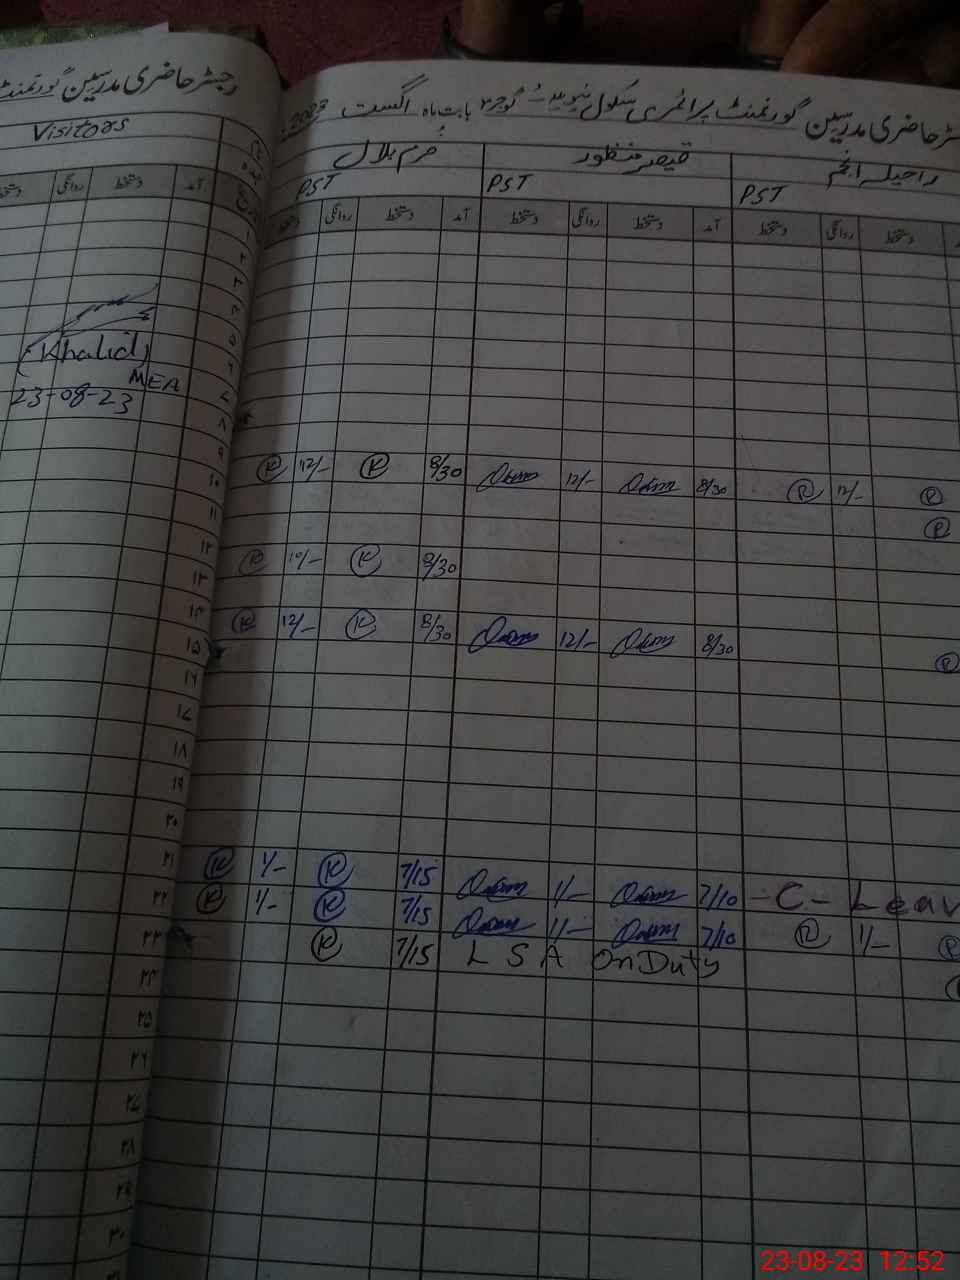 رجسٹر حاضری مدرسین گورنمنٹ
Visitors
دستخط روانگی دستخط آمد
تاریخ
(Khalid)
MEA
23-08-23
رجسٹر حاضری مدرسین گورنمنٹ پرائمری سکول بابت ماہ اگست 2023
راحیلہ انجم قیصر منظور خرم بلال
PST PST PST
دستخط روانگی دستخط آمد دستخط روانگی دستخط آمد دستخط روانگی دستخط
۱
۲
۳
۴
۵
۶
۷
۸
۹
۱۰
۱۱
۱۲
۱۳
۱۴
۱۵
۱۶
۱۷
۱۸
۱۹
۲۰
۲۱
۲۲
۲۳
۲۴
۲۵
۲۶
۲۷
۲۸
۲۹
۳۰
K 12/- K 8/30 12/- 8/30 R 12/- R
R
K 10/- K 8/30
K 12/- K 8/30 12/- 8/30
R
K 1/- K 7/15 1/- 7/10 - C - Leav
K 1/- K 7/15 1/- 7/10 R 1/- R
K 7/15 L S A On Duty
23-08-23 12:52